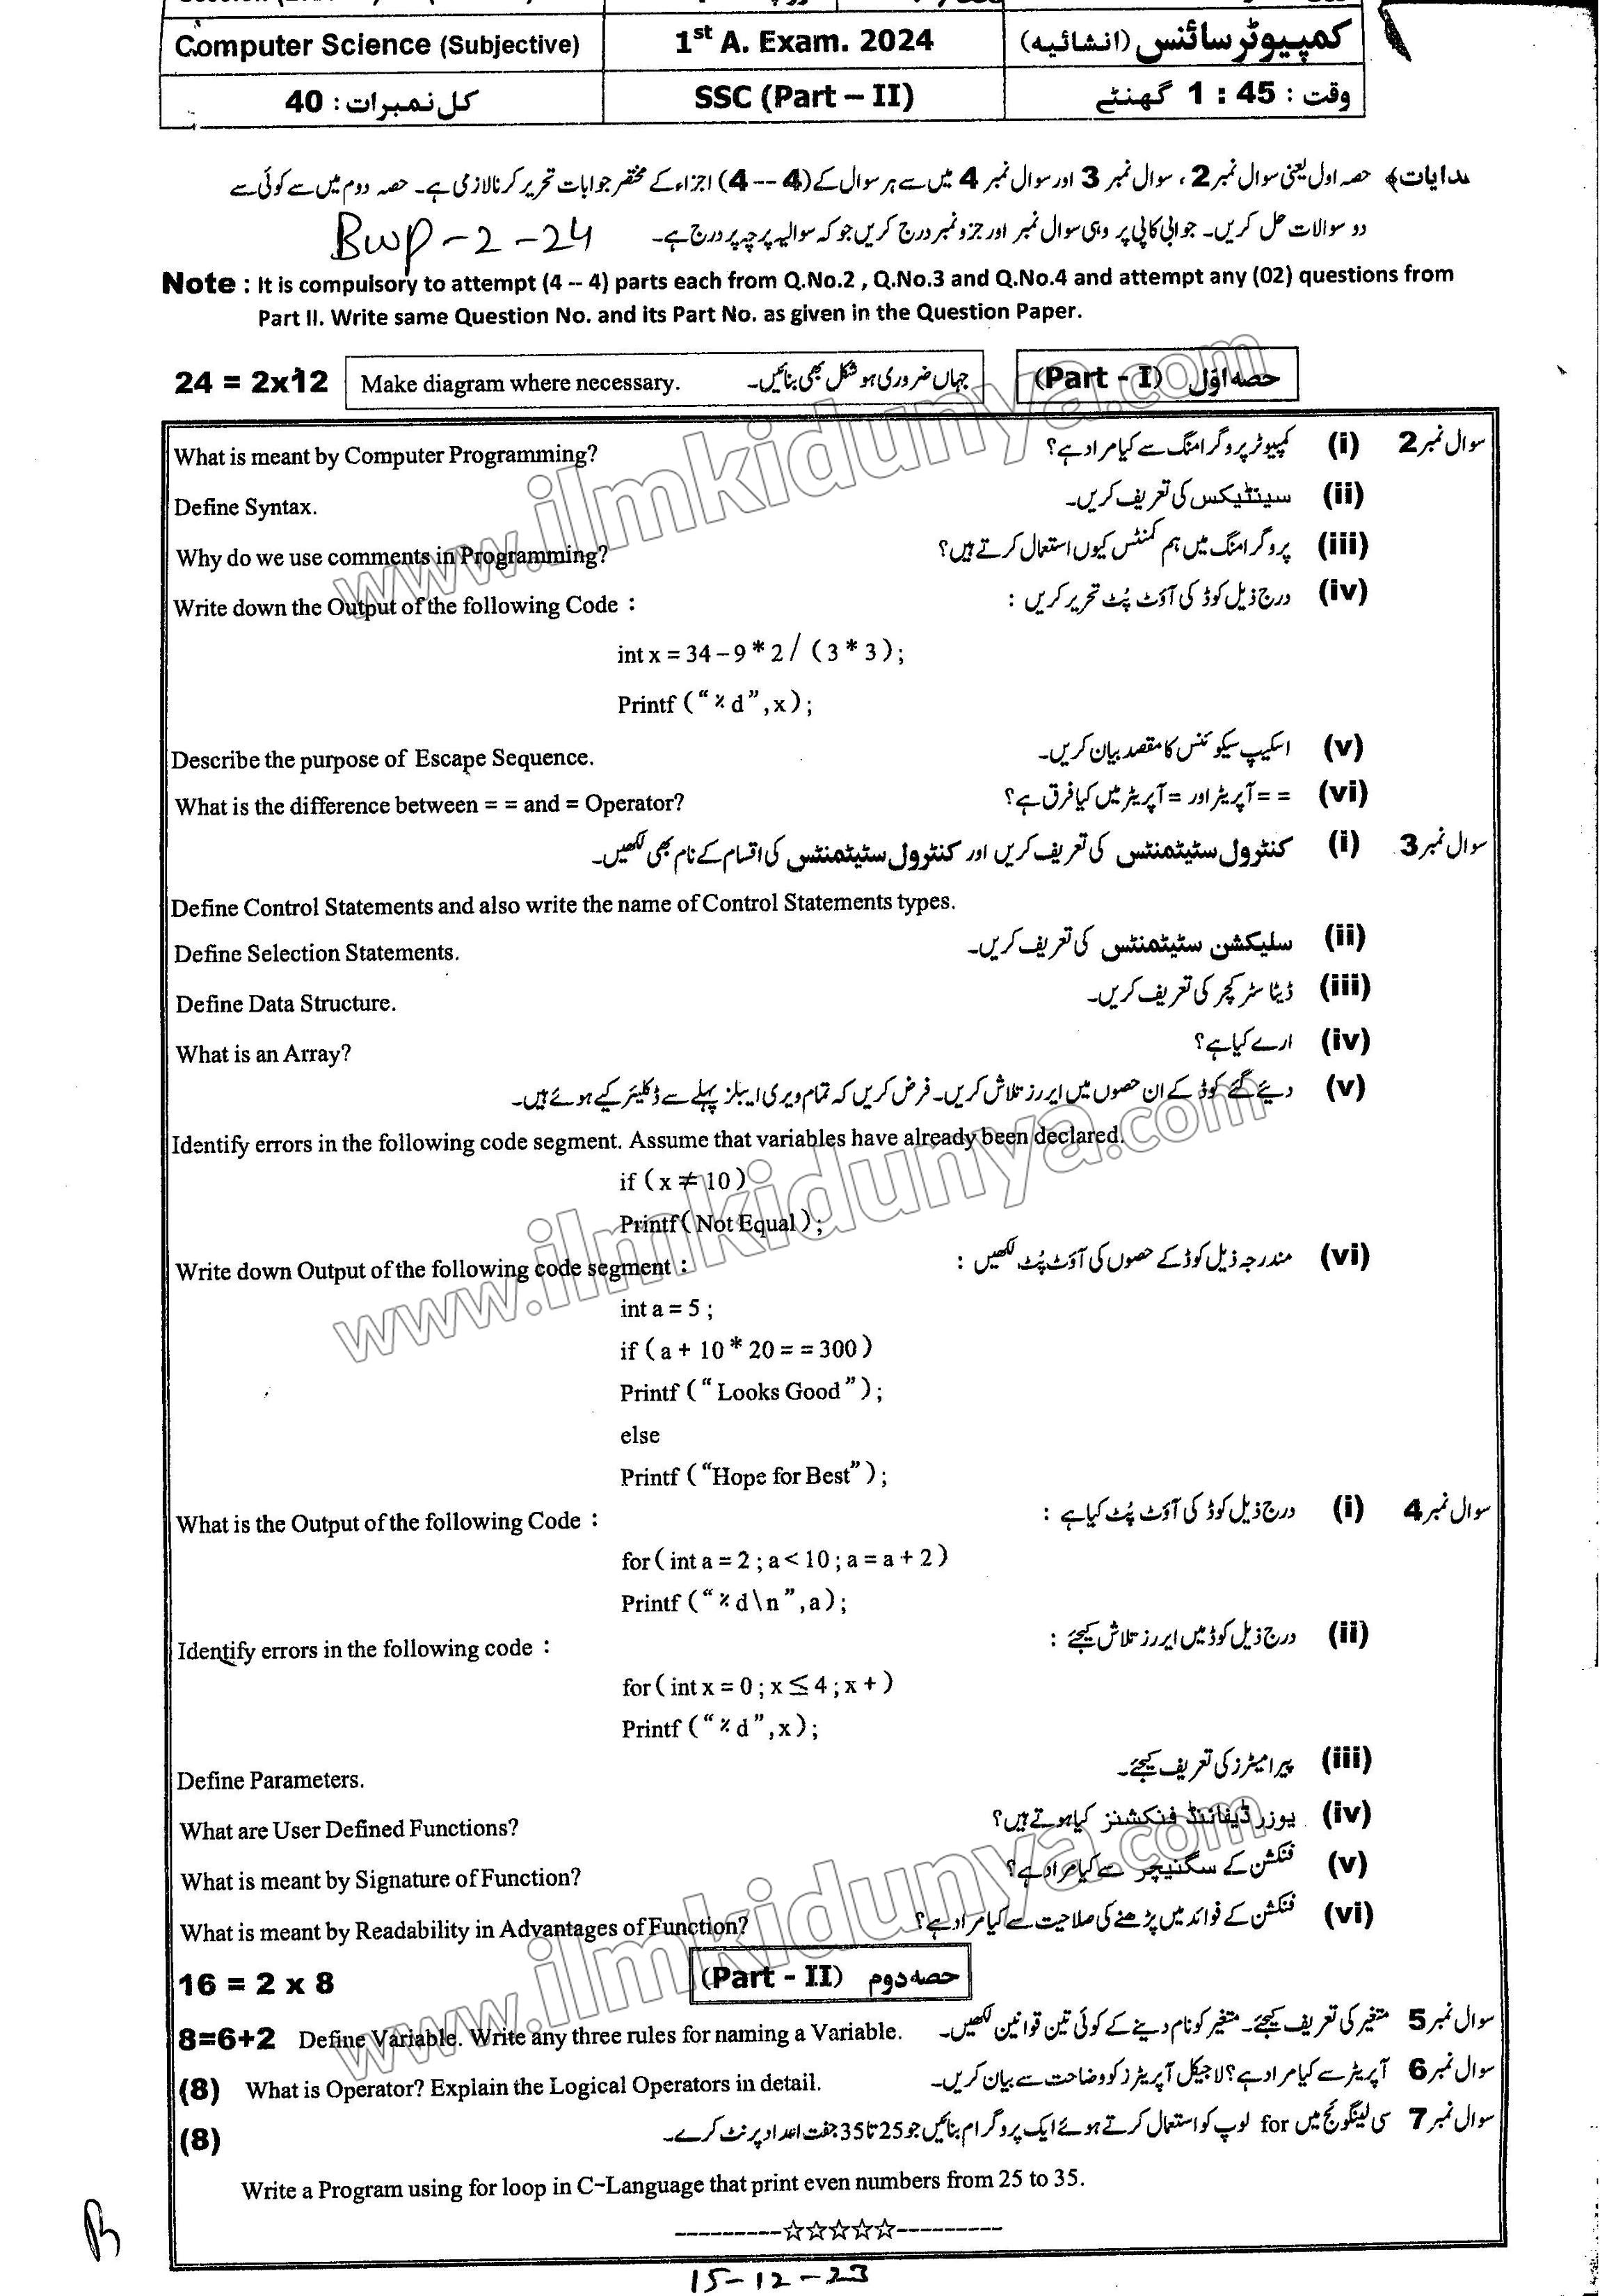 Computer Science (Subjective) 1st A. Exam. 2024 کمپیوٹر سائنس (انشائیہ)
کل نمبرات : 40 SSC (Part – II) وقت : 45 : 1 گھنٹے
ہدایات﴾ حصہ اول یعنی سوال نمبر 2 ، سوال نمبر 3 اور سوال نمبر 4 میں سے ہر سوال کے (4 -- 4) اجزاء کے مختصر جوابات تحریر کرنا لازمی ہے۔ حصہ دوم میں سے کوئی سے
دو سوالات حل کریں۔ جوابی کاپی پر وہی سوال نمبر اور جزو نمبر درج کریں جو کہ سوالیہ پرچہ پر درج ہے۔ BWP-2-24
Note : It is compulsory to attempt (4 -- 4) parts each from Q.No.2 , Q.No.3 and Q.No.4 and attempt any (02) questions from
Part II. Write same Question No. and its Part No. as given in the Question Paper.
24 = 2x12 Make diagram where necessary. جہاں ضروری ہو شکل بھی بنائیں۔ (Part - I) حصہ اوّل
سوال نمبر 2 (i) کمپیوٹر پروگرامنگ سے کیا مراد ہے؟ What is meant by Computer Programming?
(ii) سینٹیکس کی تعریف کریں۔ Define Syntax.
(iii) پروگرامنگ میں ہم کمنٹس کیوں استعمال کرتے ہیں؟ Why do we use comments in Programming?
(iv) درج ذیل کوڈ کی آؤٹ پُٹ تحریر کریں : Write down the Output of the following Code :
int x = 34 – 9 * 2 / ( 3 * 3 ) ;
Printf ( “ % d ” , x ) ;
(v) اسکیپ سیکوئنس کا مقصد بیان کریں۔ Describe the purpose of Escape Sequence.
(vi) = = آپریٹر اور = آپریٹر میں کیا فرق ہے؟ What is the difference between = = and = Operator?
سوال نمبر 3 (i) کنٹرول سٹیٹمنٹس کی تعریف کریں اور کنٹرول سٹیٹمنٹس کی اقسام کے نام بھی لکھیں۔
Define Control Statements and also write the name of Control Statements types.
(ii) سلیکشن سٹیٹمنٹس کی تعریف کریں۔ Define Selection Statements.
(iii) ڈیٹا سٹرکچر کی تعریف کریں۔ Define Data Structure.
(iv) ارے کیا ہے؟ What is an Array?
(v) دیئے گئے کوڈ کے ان حصوں میں ایررز تلاش کریں۔ فرض کریں کہ تمام ویری ایبلز پہلے سے ڈکلیئر کیے ہوئے ہیں۔
Identify errors in the following code segment. Assume that variables have already been declared.
if ( x ≠ 10 )
Printf ( Not Equal ) ;
(vi) مندرجہ ذیل کوڈ کے حصوں کی آؤٹ پُٹ لکھیں : Write down Output of the following code segment :
int a = 5 ;
if ( a + 10 * 20 = = 300 )
Printf ( “ Looks Good ” ) ;
else
Printf ( “Hope for Best” ) ;
سوال نمبر 4 (i) درج ذیل کوڈ کی آؤٹ پُٹ کیا ہے : What is the Output of the following Code :
for ( int a = 2 ; a < 10 ; a = a + 2 )
Printf ( “ % d \ n ” , a ) ;
(ii) درج ذیل کوڈ میں ایررز تلاش کیجئے : Identify errors in the following code :
for ( int x = 0 ; x ≤ 4 ; x + )
Printf ( “ % d ” , x ) ;
(iii) پیرامیٹرز کی تعریف کیجئے۔ Define Parameters.
(iv) یوزر ڈیفائنڈ فنکشنز کیا ہوتے ہیں؟ What are User Defined Functions?
(v) فنکشن کے سگنیچر سے کیا مراد ہے؟ What is meant by Signature of Function?
(vi) فنکشن کے فوائد میں پڑھنے کی صلاحیت سے کیا مراد ہے؟ What is meant by Readability in Advantages of Function?
16 = 2 x 8 (Part - II) حصہ دوم
سوال نمبر 5 متغیر کی تعریف کیجئے۔ متغیر کو نام دینے کے کوئی تین قوانین لکھیں۔ Define Variable. Write any three rules for naming a Variable. 8=6+2
سوال نمبر 6 آپریٹر سے کیا مراد ہے؟ لاجیکل آپریٹرز کو وضاحت سے بیان کریں۔ What is Operator? Explain the Logical Operators in detail. (8)
سوال نمبر 7 سی لینگوئج میں for لوپ کو استعمال کرتے ہوئے ایک پروگرام بنائیں جو 25 تا 35 جفت اعداد پرنٹ کرے۔ (8)
Write a Program using for loop in C-Language that print even numbers from 25 to 35.
---------☆☆☆☆☆---------
15-12-23
B
www.ilmkidunya.com
www.ilmkidunya.com
www.ilmkidunya.com